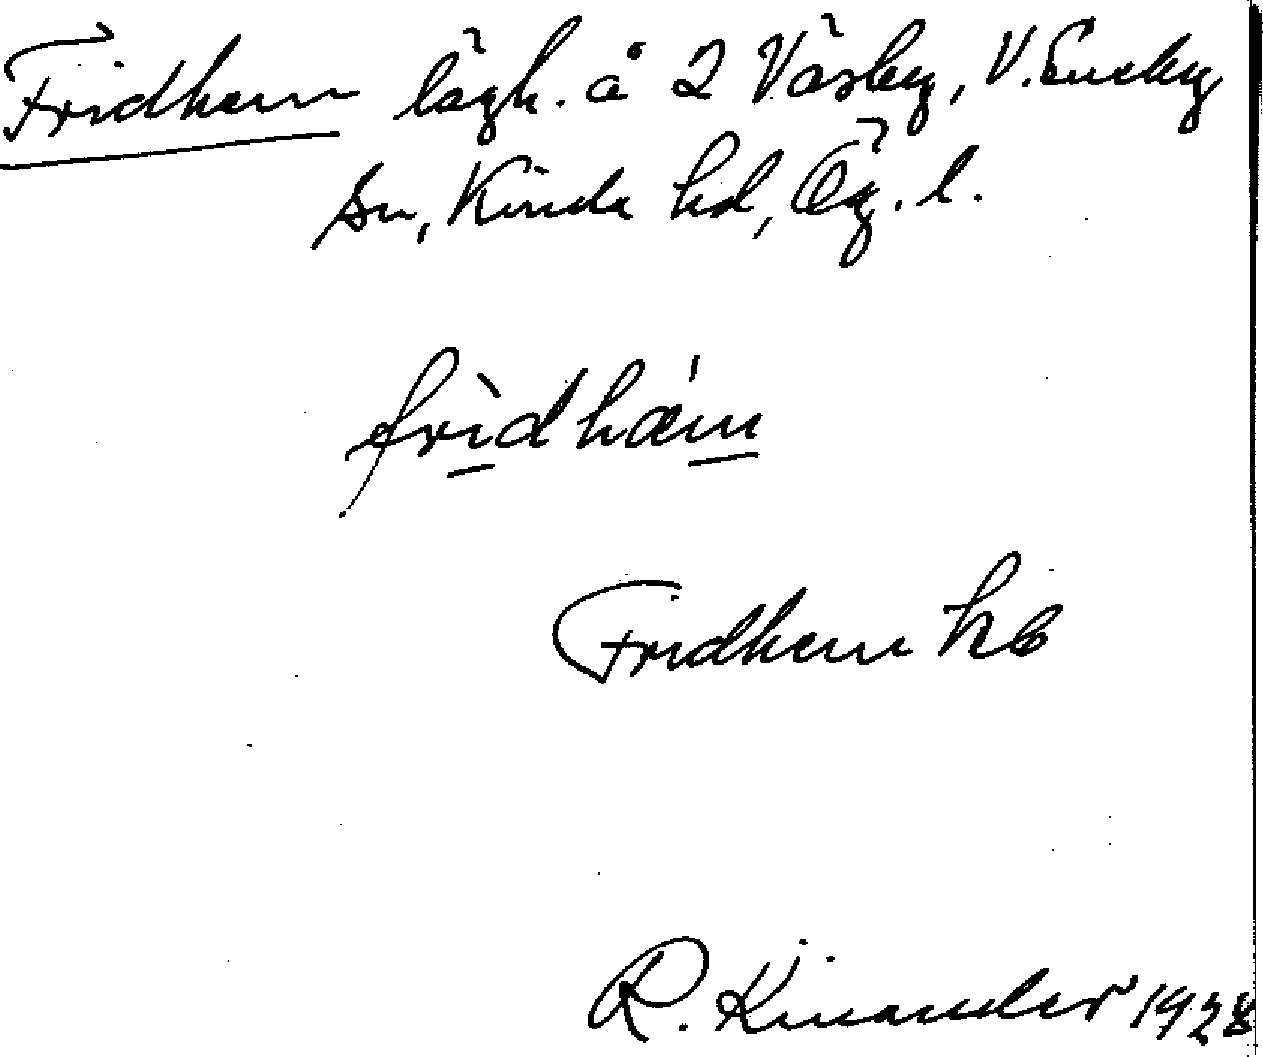 Fridhem lägh. å 2 Väsby, V. Eneby
sn, Kinda hd, Ög. l.
frìdhæ'm
Fridhem hb
R. Kinander 1928